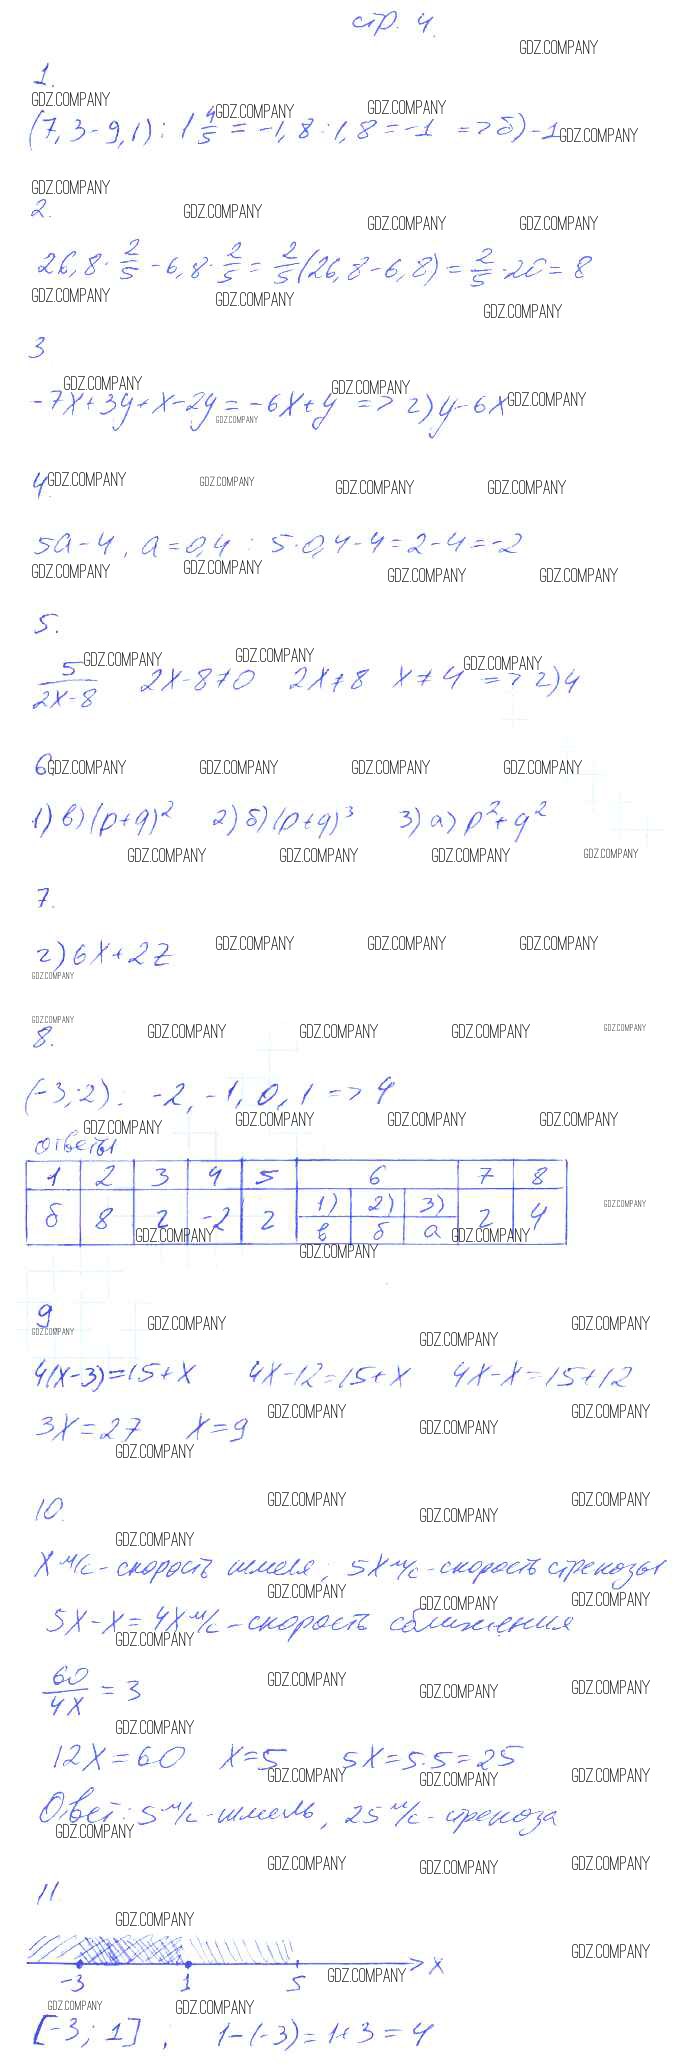 стр. 4.
1.
(7,3-9,1) : 1 4/5 = -1,8 : 1,8 = -1 => б) -1
2.
26,8 · 2/5 - 6,8 · 2/5 = 2/5 (26,8-6,8) = 2/5 · 20 = 8
3
-7x+3y+x-2y = -6x+y => г) y-6x
4.
5a-4, a=0,4 : 5·0,4-4=2-4=-2
5.
5/(2x-8) 2x-8≠0 2x≠8 x≠4 => г) 4
6.
1) в) (p+q)² 2) б) (p+q)³ 3) а) p²+q²
7.
г) 6x+2z
8.
(-3; 2): -2, -1, 0, 1 => 4
ответы
1 2 3 4 5 6 7 8
б 8 г -2 г 1) 2) 3) г 4
в б а
9
4(x-3)=15+x 4x-12=15+x 4x-x=15+12
3x=27 x=9
10.
x м/с - скорость шмеля; 5x м/с - скорость стрекозы
5x-x=4x м/с - скорость сближения
60/4x = 3
12x=60 x=5 5x=5·5=25
Ответ: 5 м/с - шмель, 25 м/с - стрекоза
11.
-3 1 5 x
[-3; 1] ; 1-(-3)=1+3=4
GDZ.COMPANY